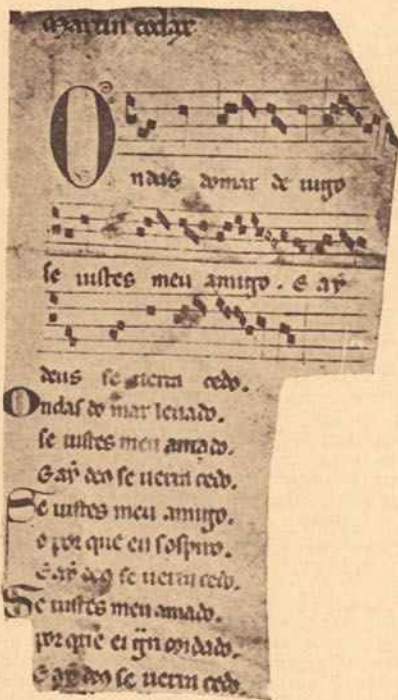 Martin codax
Ondas do mar de uigo
se uistes meu amigo. E ay
deus se uerra cedo.
Ondas do mar leuado.
se uistes meu amado.
E ay deo se uerra cedo.
Se uistes meu amigo.
o por que eu sospiro.
E ay deo se uerra cedo.
Se uistes meu amado.
por que ei gran coidado.
E ay deo se uerra cedo